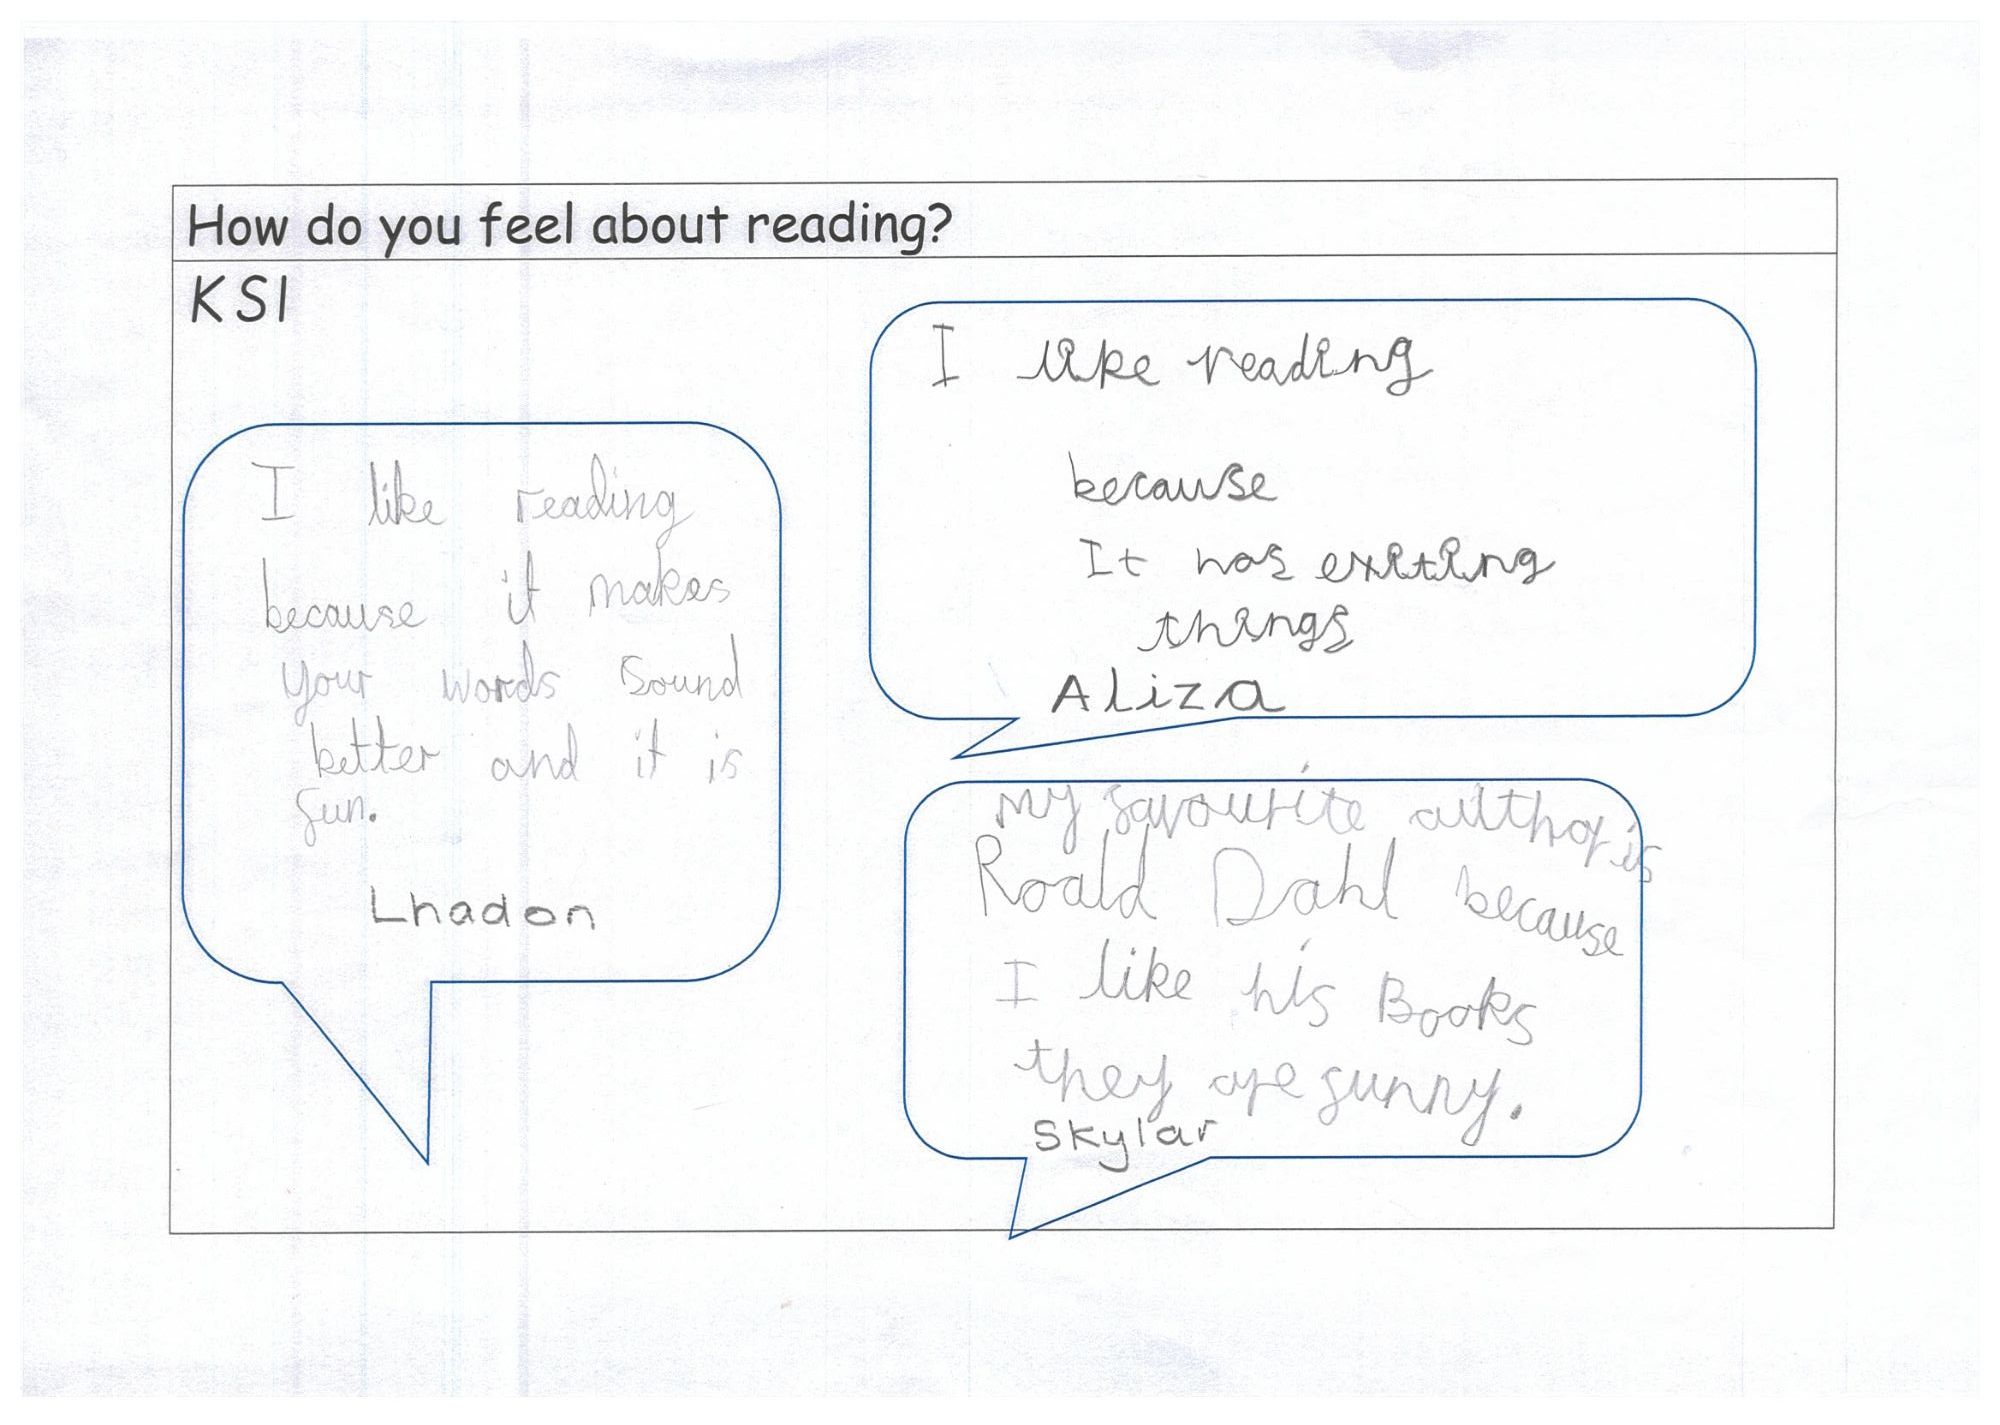 How do you feel about reading?
KS1
I like reading
because it makes
your words sound
better and it is
fun.
Lhadon
I like reading
because
It has exiting
things
Aliza
my favourite author is
Roald Dahl because
I like his Books
they are funny.
Skylar